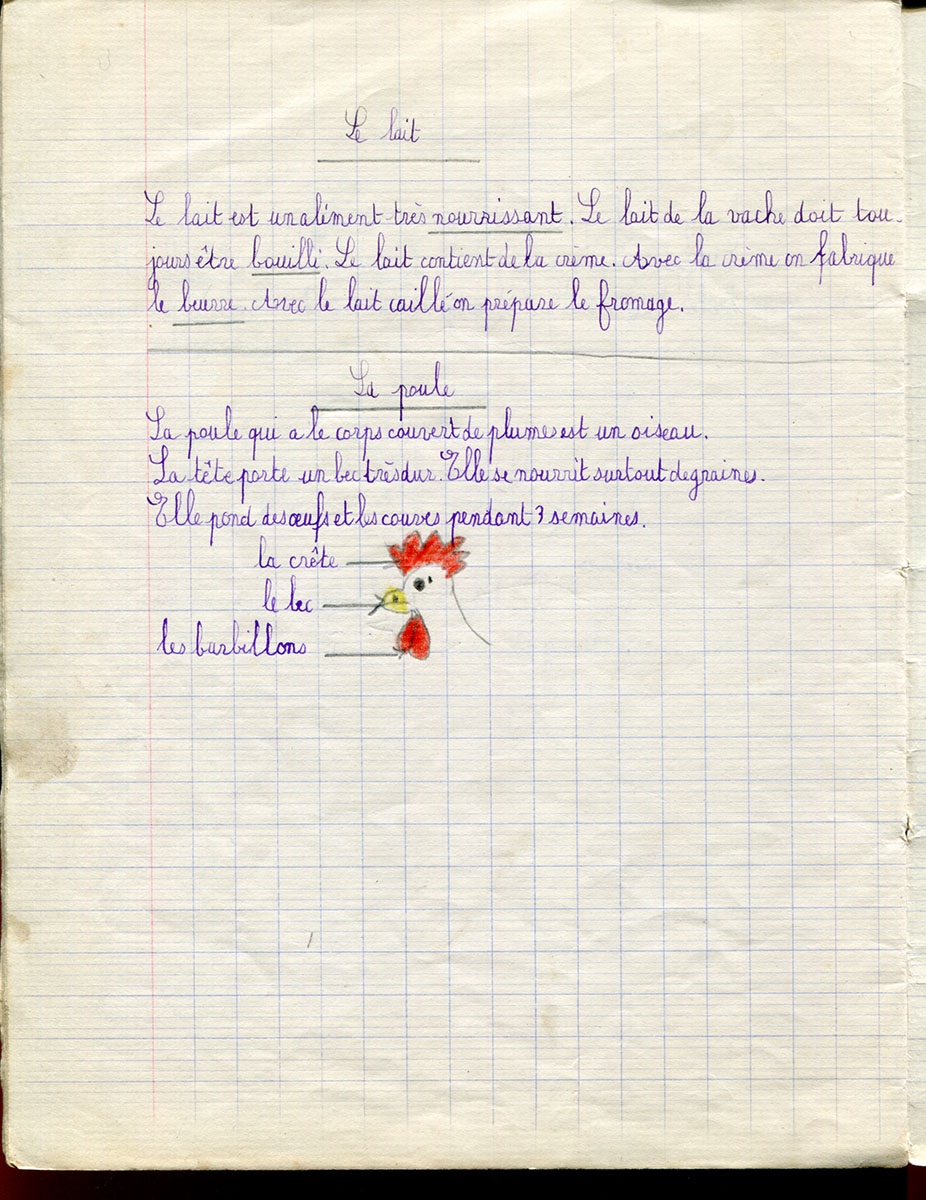 Le lait
Le lait est un aliment très nourrissant. Le lait de la vache doit tou-
jours être bouilli. Le lait contient de la crème. Avec la crème on fabrique
le beurre. Avec le lait caillé on prépare le fromage.
La poule
La poule qui a le corps couvert de plumes est un oiseau.
La tête porte un bec très dur. Elle se nourrit surtout de graines.
Elle pond des œufs et les couves pendant 3 semaines.
la crête
le bec
les barbillons